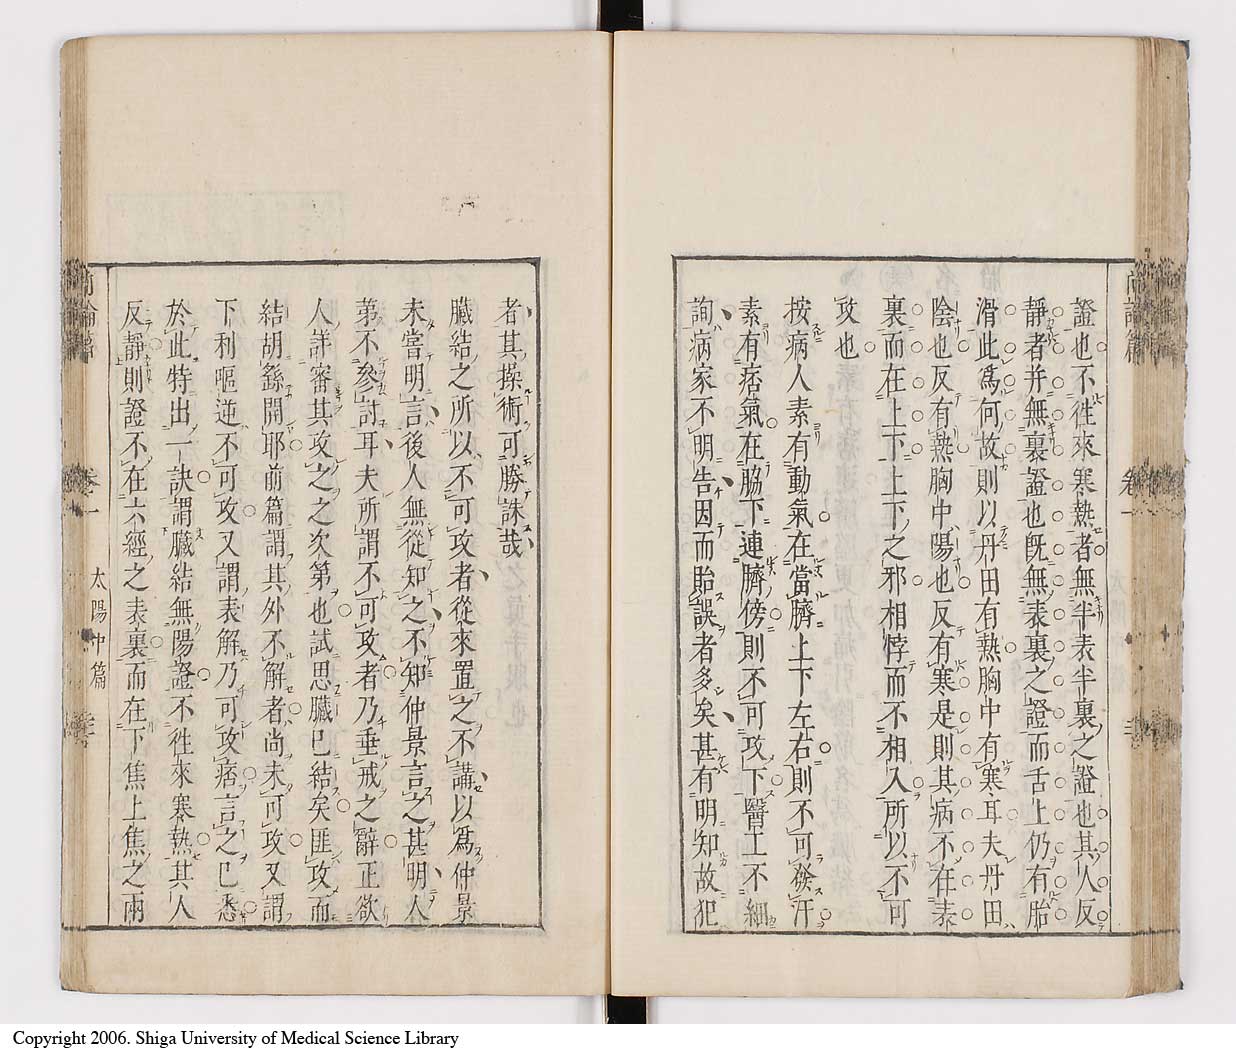 證也不徃來寒熱者無半表半裏之證也其人反
靜者并無裏證也既無表裏之證而舌上仍有胎
滑此爲何故則以丹田有熱胸中有寒耳夫丹田
陰也反有熱胸中陽也反有寒是則其病不在表
裏而在上下上下之邪相悖而不相入所以不可
攻也
按病人素有動氣在當臍上下左右則不可發汗
素有痞氣在脇下連臍傍則不可攻下醫工不細
詢病家不明告因而貽誤者多矣甚有明知故犯
者其操術可勝誅哉
臓結之所以不可攻者從來置之不講以爲仲景
未嘗明言後人無從知之不知仲景言之甚明人
苐不參討耳夫所謂不可攻者乃垂戒之辭正欲
人詳審其攻之之次第也試思臓已結矣匪攻而
結胡繇開耶前篇謂其外不解者尚未可攻又謂
下利嘔逆不可攻又謂表解乃可攻痞言之已悉
於此特出一訣謂臓結無陽證不徃來寒熱其人
反靜則證不在六經之表裏而在下焦上焦之兩
卷一
太陽中篇
Copyright 2006. Shiga University of Medical Science Library